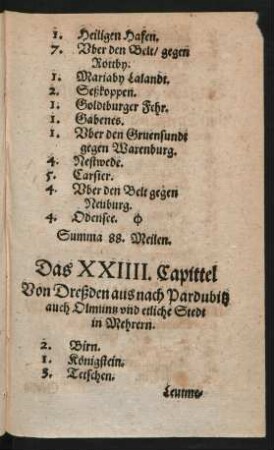 1. Heiligen Hafen.
7. Vber den Belt/ gegen
Röttby.
1. Mariaby Lalandt.
2. Seßkoppen.
1. Goldtburger Fehr.
1. Gabenes.
1. Vber den Gruensundt
gegen Warenburg.
4. Nestwede.
5. Carsier.
4. Vber den Belt gegen
Neuburg.
4. Odensee. ф
Summa 88. Meilen.
Das XXIIII. Capittel
Von Dreßden aus nach Pardubitz
auch Olmuntz vnd etliche Stedt
in Mehrern.
2. Birn.
1. Königstein.
5. Tetschen.
Leutme-